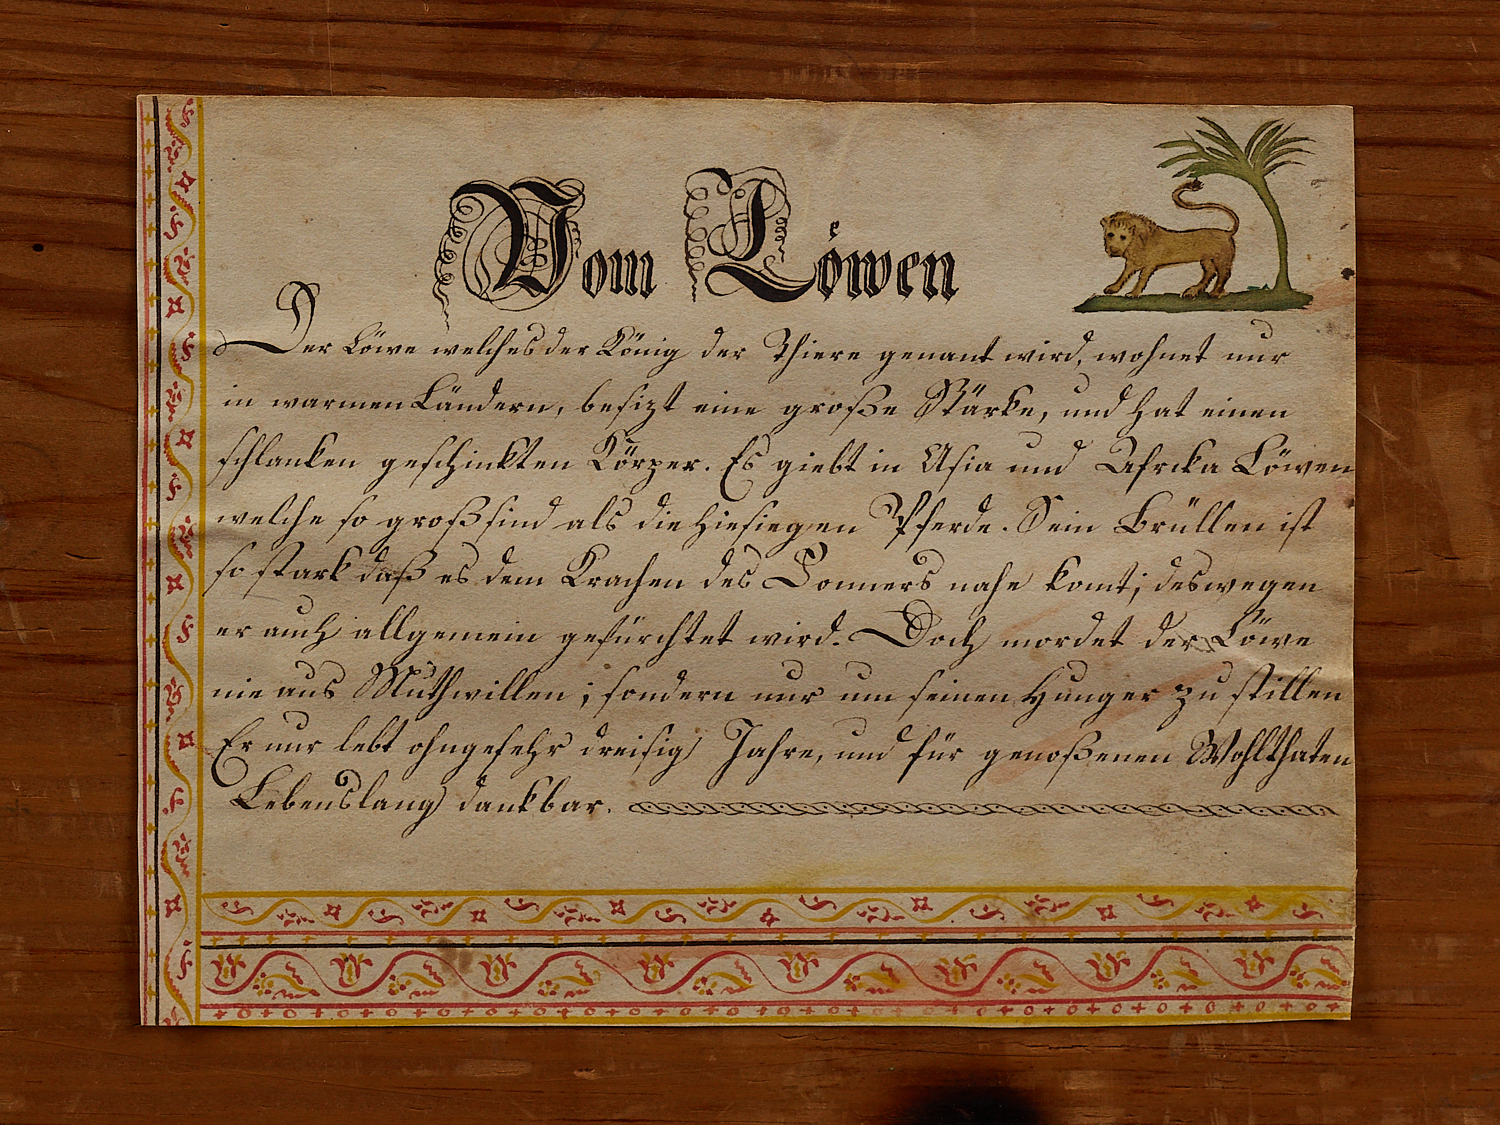 Vom Löwen
Der Löwe welches der König der Thiere genant wird, wohnet nur
in warmen Ländern, besizt eine große Stärke, und hat einen
schlanken geschickten Körper. Es giebt in Asia und Afrika Löwen
welche so groß sind als die hiesiegen Pferde. Sein Brüllen ist
so stark daß es dem Krachen des Donners nahe komt; deswegen
er auch allgemein gefürchtet wird. Doch mordet der Löwe
nie aus Muthwillen; sondern nur um seinen Hunger zu stillen
Er nur lebt ohngefehr dreisig Jahre, und für genoßenen Wohlthaten
Lebenslang dankbar.